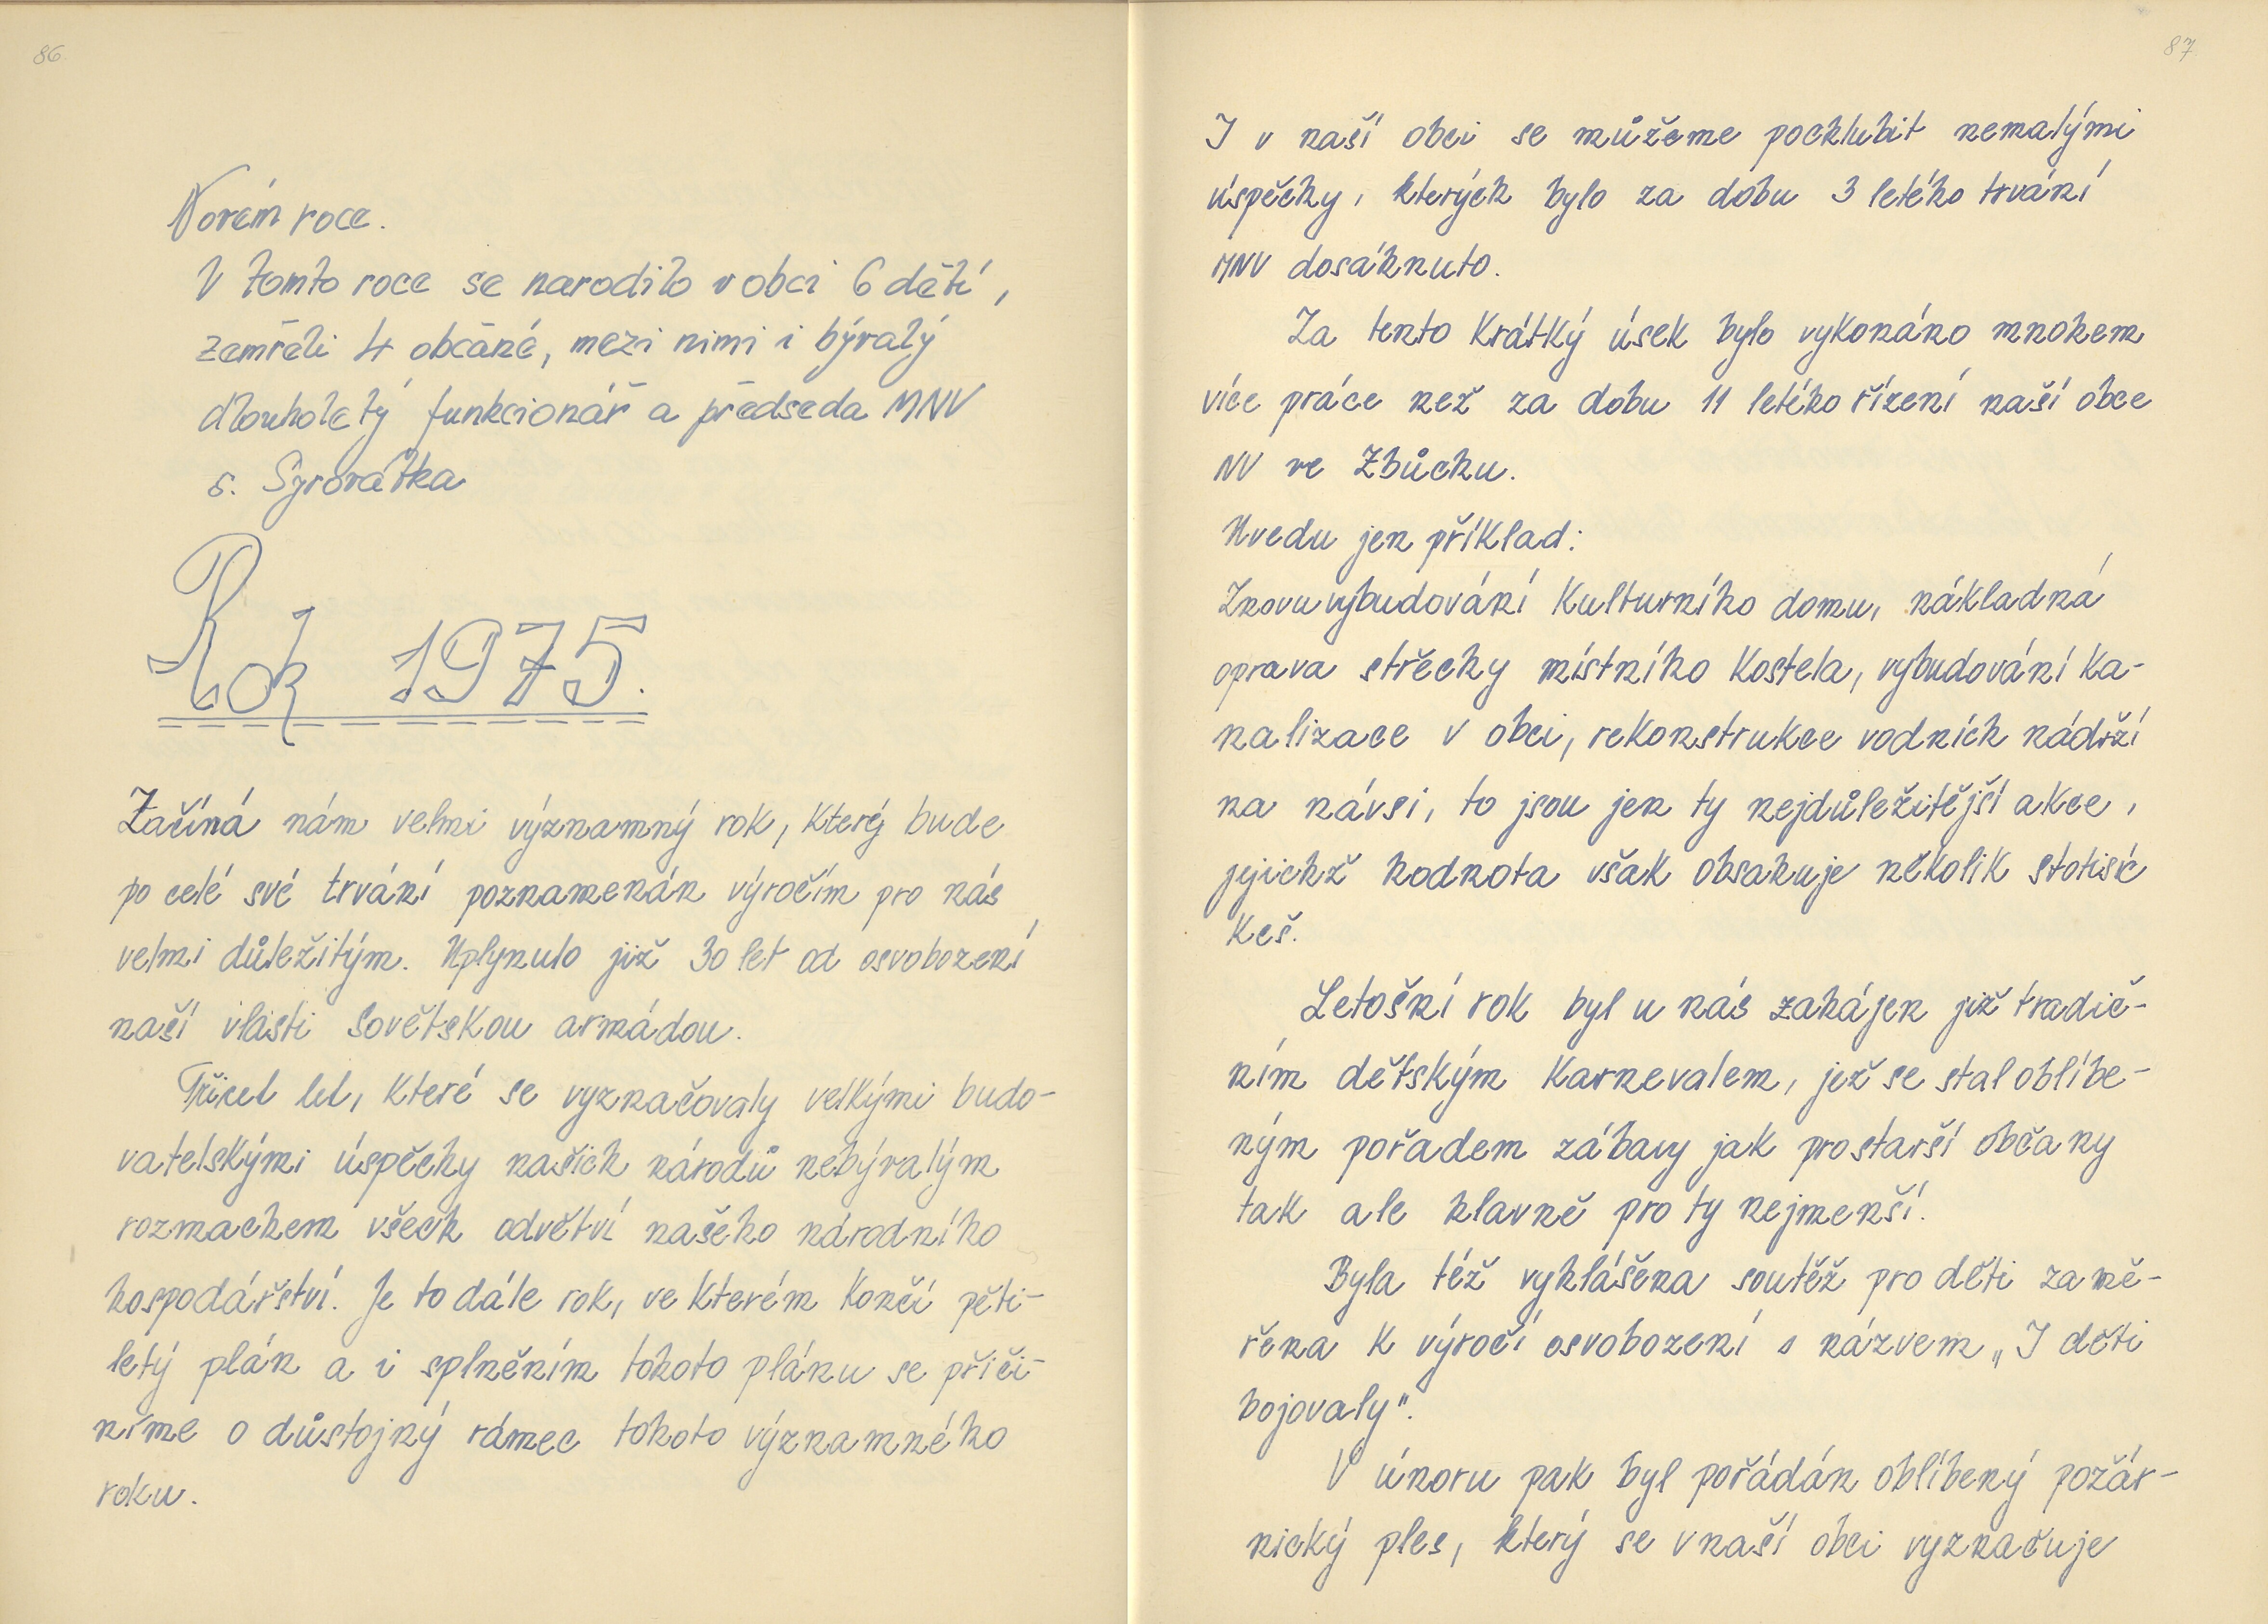 86
Novém roce.
V tomto roce se narodilo v obci 6 dětí,
zemřeli 4 občané, mezi nimi i bývalý
dlouholetý funkcionář a předseda MNV
s. Syrovátka
Rok 1975.
Začíná nám velmi významný rok, který bude
po celé své trvání poznamenán výročím pro nás
velmi důležitým. Uplynulo již 30 let od osvobození
naší vlasti Sovětskou armádou.
Třicet let, které se vyznačovaly velkými budo-
vatelskými úspěchy našich národů nebývalým
rozmachem všech odvětví našeho národního
hospodářství. Je to dále rok, ve kterém končí pěti-
letý plán a i splněním tohoto plánu se přiči-
níme o důstojný rámec tohoto významného
roku.
87
I v naší obci se můžeme pochlubit nemalými
úspěchy, kterých bylo za dobu 3 letého trvání
MNV dosáhnuto.
Za tento krátký úsek bylo vykonáno mnohem
více práce než za dobu 11 letého řízení naší obce
NV ve Zbůchu.
Uvedu jen příklad:
Znovuvybudování Kulturního domu, nákladná
oprava střechy místního kostela, vybudování ka-
nalizace v obci, rekonstrukce vodních nádrží
na návsi, to jsou jen ty nejdůležitější akce,
jejichž hodnota však obsahuje několik stotisíc
Kčs.
Letošní rok byl u nás zahájen již tradič-
ním dětským karnevalem, jež se stal oblíbe-
ným pořadem zábavy jak pro starší občany
tak ale hlavně pro ty nejmenší.
Byla též vyhlášena soutěž pro děti zamě-
řena k výročí osvobození s názvem „I děti
bojovaly".
V únoru pak byl pořádán oblíbený požár-
nický ples, který se v naší obci vyznačuje